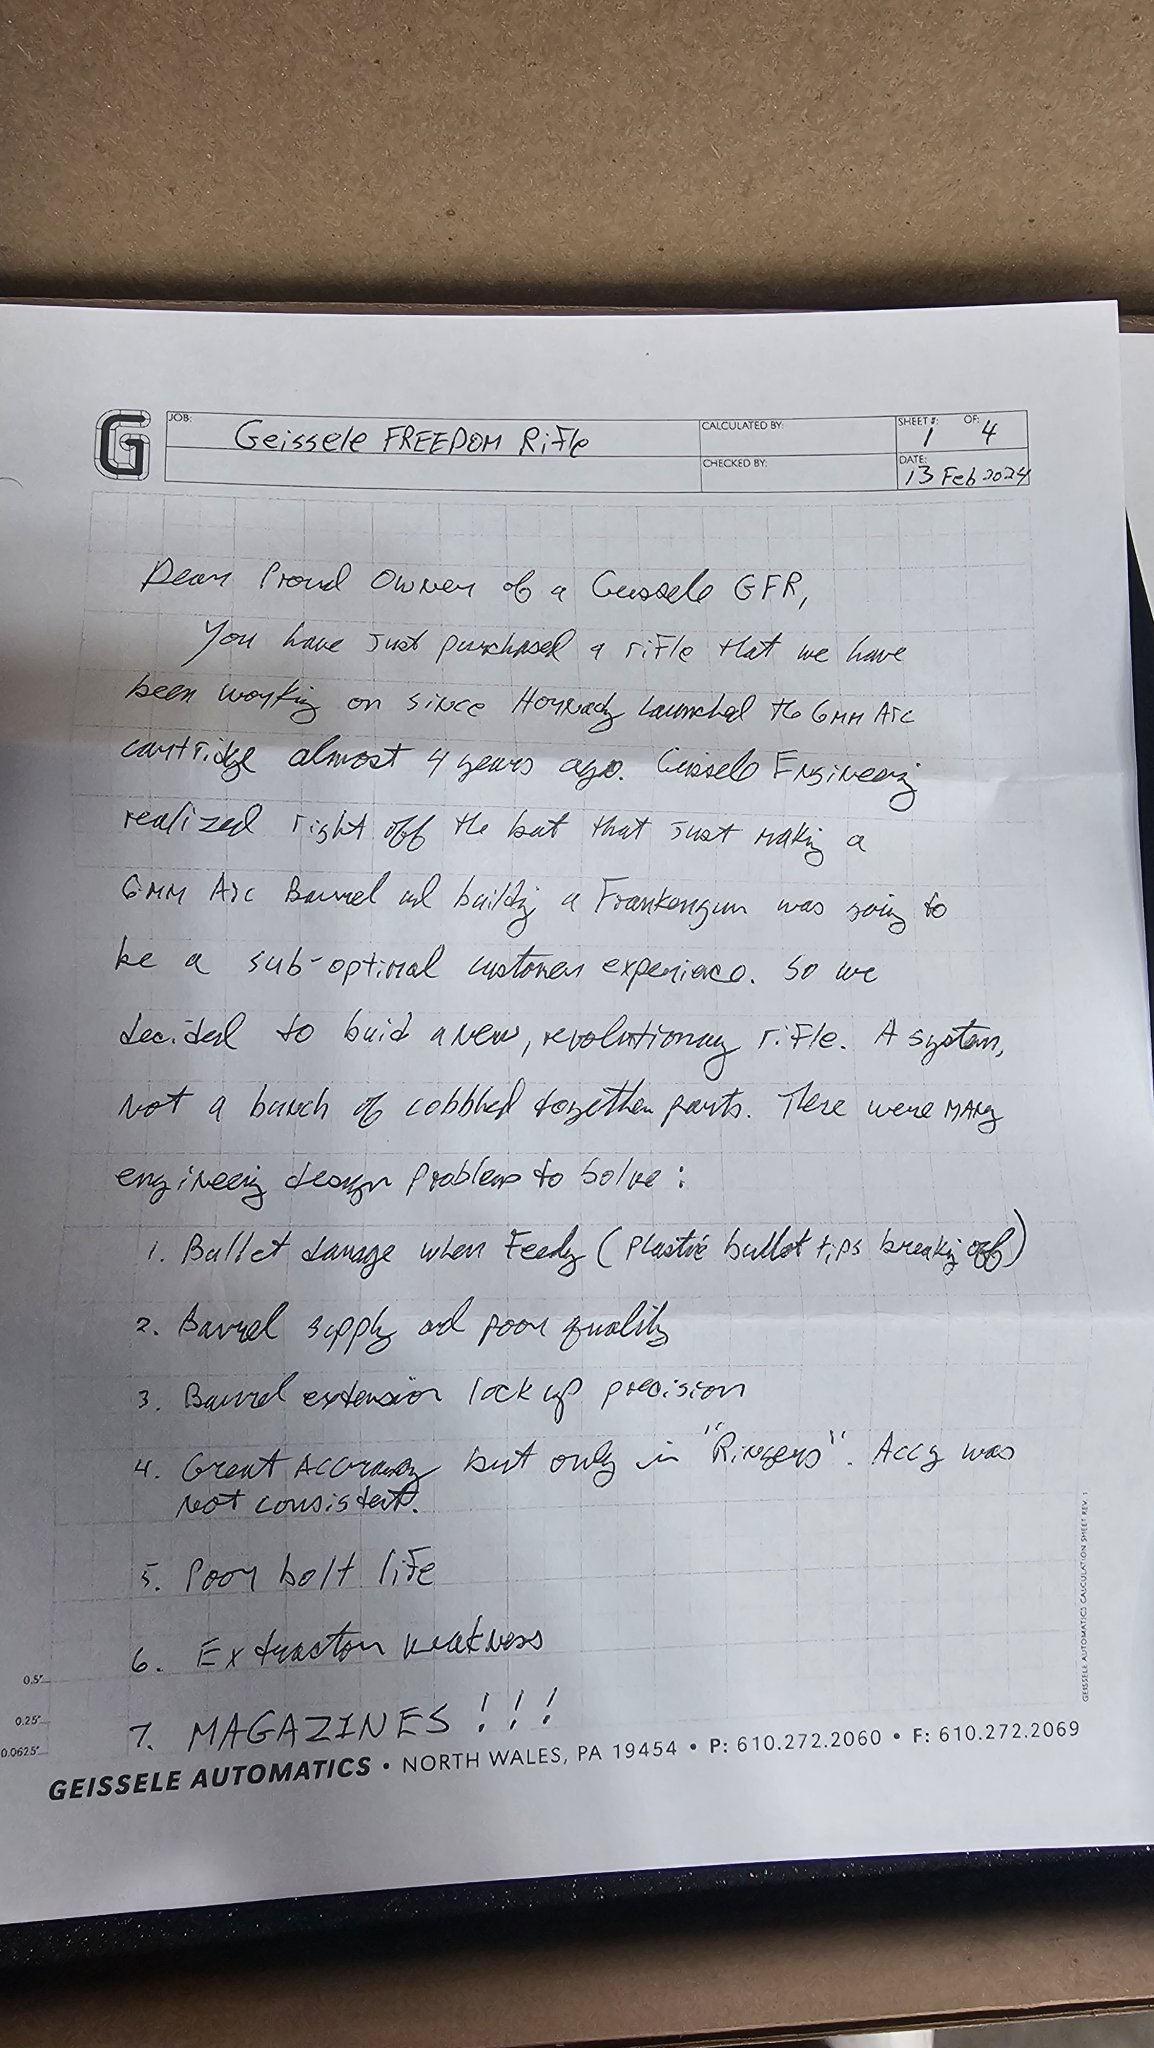 G
JOB:
Geissele FREEDOM Rifle
CALCULATED BY:
CHECKED BY:
SHEET #: 1 OF: 4
DATE: 13 Feb 2024
Dear Proud Owner of a Geissele GFR,
You have just purchased a rifle that we have
been working on since Hornady launched the 6mm ARC
cartridge almost 4 years ago. Geissele Engineering
realized right off the bat that just making a
6mm ARC Barrel and building a Frankengun was going to
be a sub-optimal customer experience. So we
decided to buid a new, revolutionary rifle. A system,
Not a bunch of cobbled together parts. There were MANy
engineering design problems to solve:
1. Bullet damage when Feeding (plastic bullet tips breaking off)
2. Barrel supply and poor quality
3. Barrel extension lock up precision
4. Great Accuracy but only in "Ringers". Accy was
Not consistent.
5. Poor bolt life
6. Extractor weakness
7. MAGAZINES!!!
0.5"
0.25"
0.0625"
GEISSELE AUTOMATICS CALCULATION SHEET REV. 1
GEISSELE AUTOMATICS • NORTH WALES, PA 19454 • P: 610.272.2060 • F: 610.272.2069